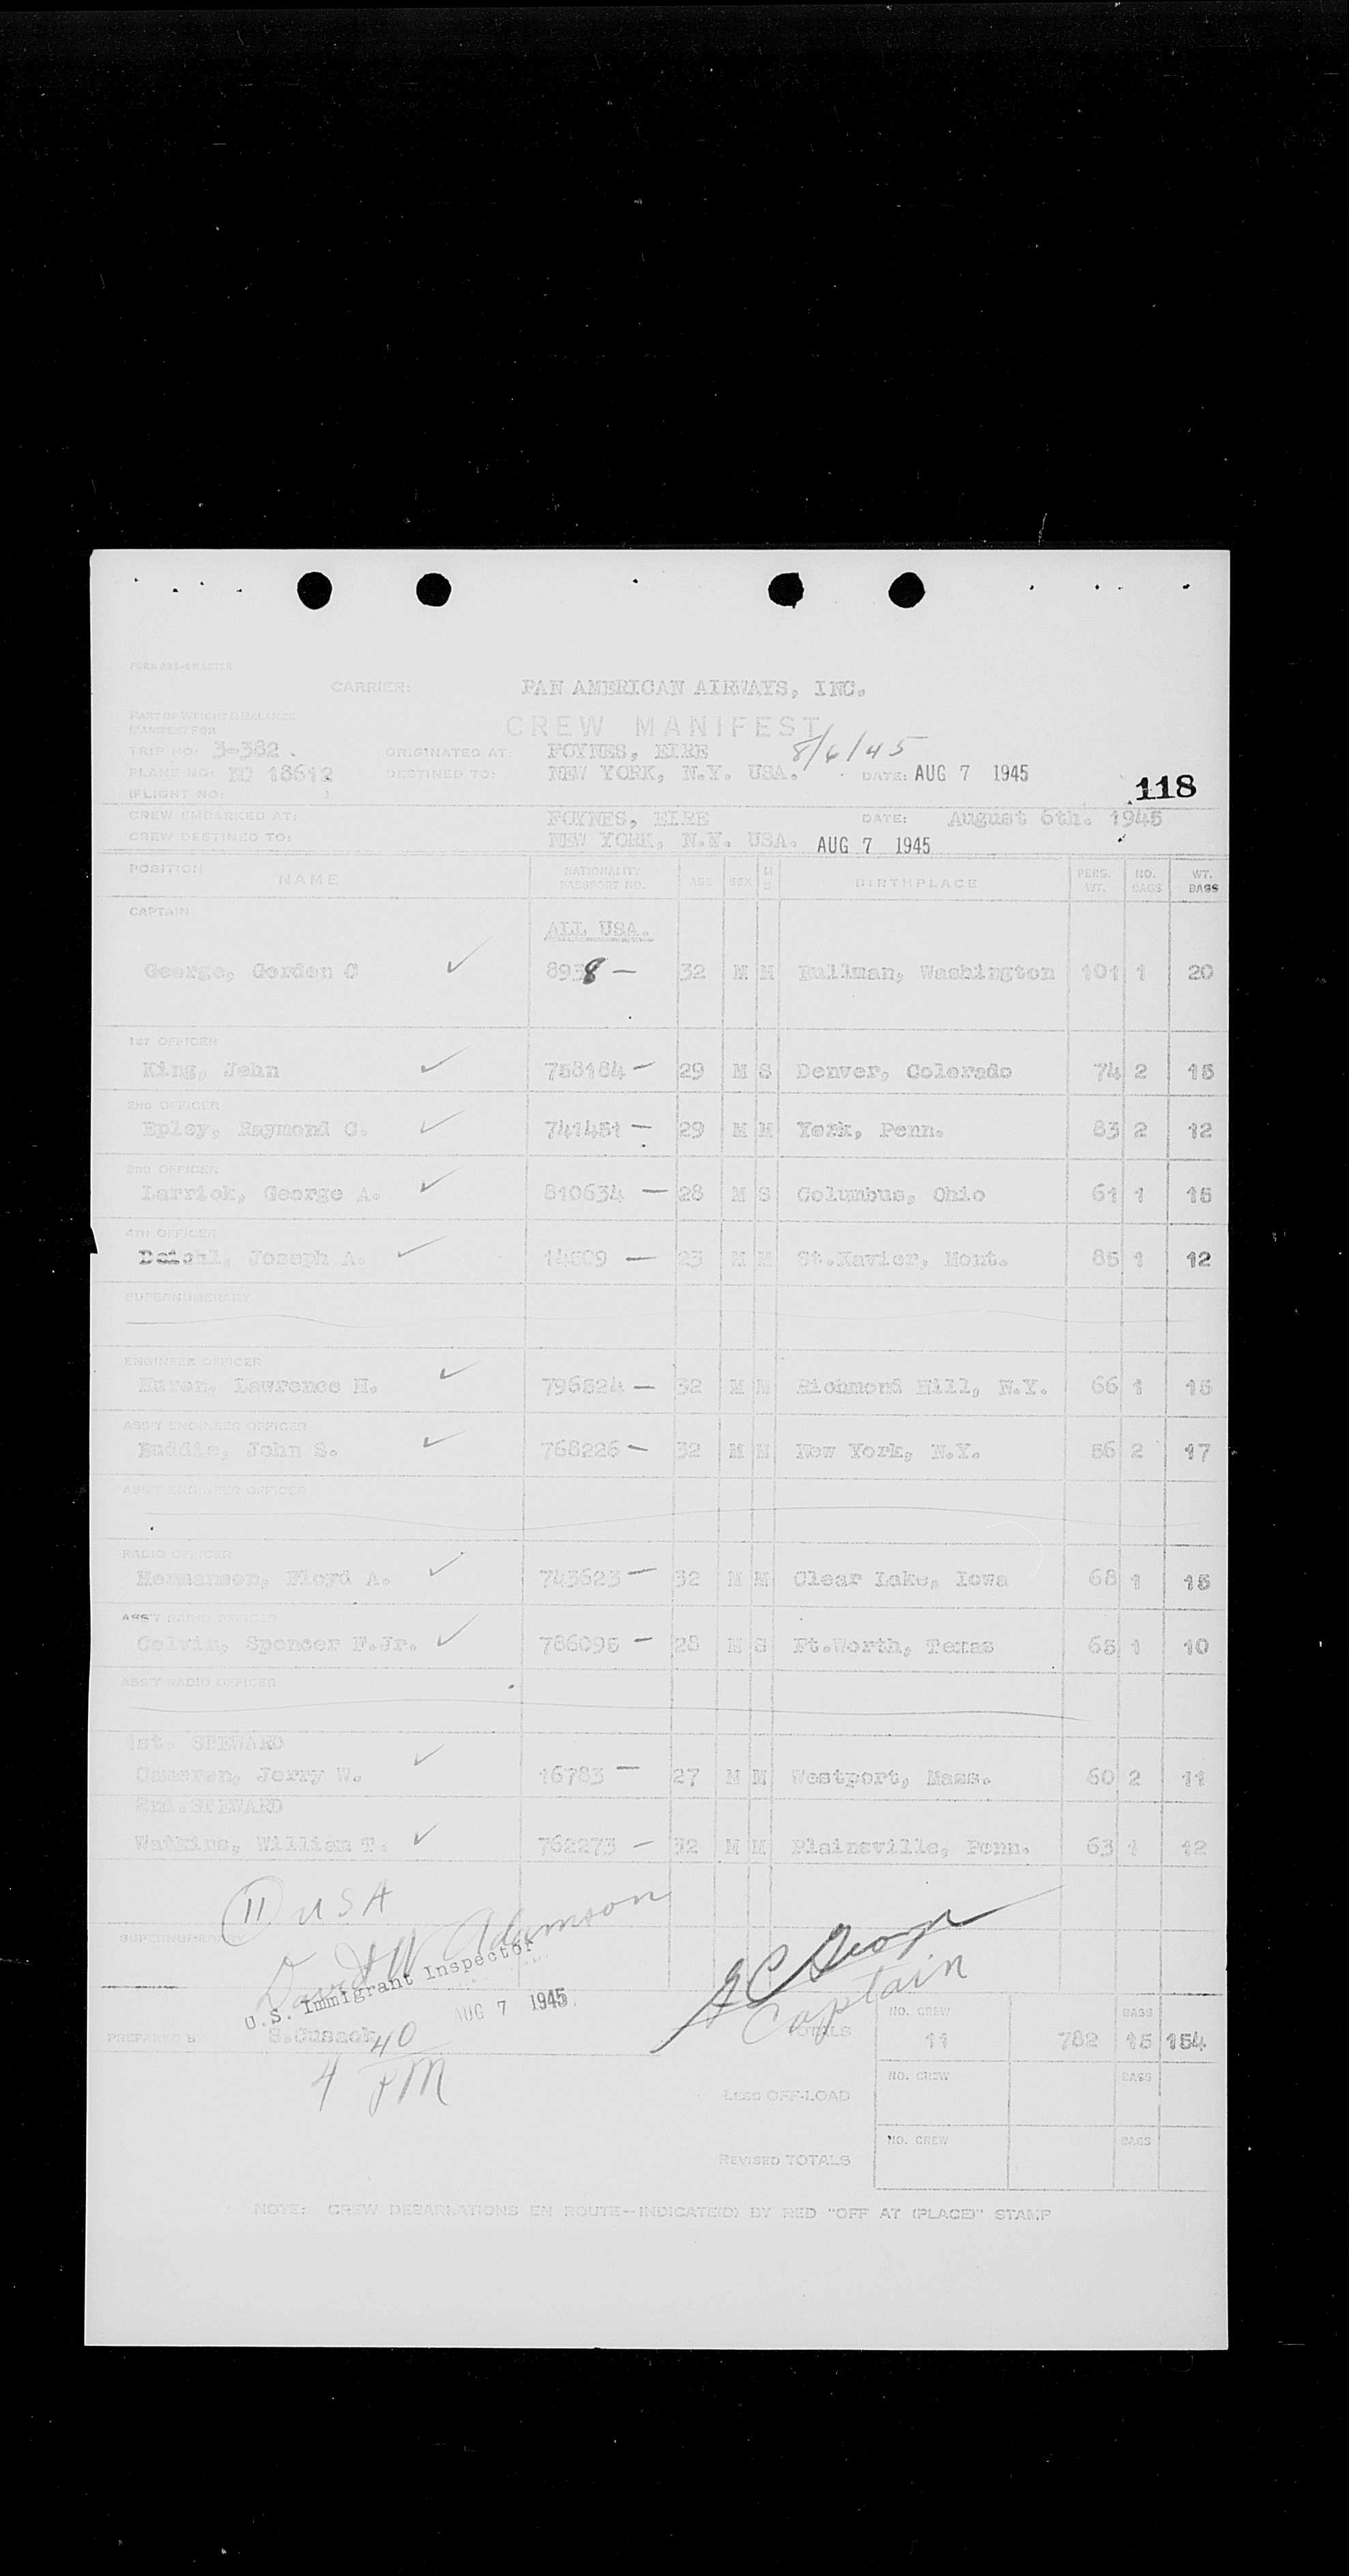 CARRIER: PAN AMERICAN AIRWAYS, INC.
PART OF WEIGHT & BALANCE
MANIFEST FOR
CREW MANIFEST
TRIP NO: 3-382. ORIGINATED AT: FOYNES, EIRE 8/6/45
PLANE NO: NC 18612 DESTINED TO: NEW YORK, N.Y. USA. DATE: AUG 7 1945
118
(FLIGHT NO: )
CREW EMBARKED AT: FOYNES, EIRE DATE: August 6th. 1945
CREW DESTINED TO: NEW YORK, N.Y. USA. AUG 7 1945
POSITION NAME NATIONALITY PASSPORT NO. AGE SEX M S BIRTHPLACE PERS. WT. NO. BAGS WT. BAGS
CAPTAIN
ALL USA.
George, Gordon C ✓ 8938 — 32 M M Pullman, Washington 101 1 20
1ST OFFICER
King, John ✓ 758184 — 29 M S Denver, Colorado 74 2 15
2ND OFFICER
Epley, Raymond C. ✓ 741451 — 29 M M York, Penn. 83 2 12
3RD OFFICER
Larrick, George A. ✓ 810634 — 28 M S Columbus, Ohio 61 1 15
4TH OFFICER
Deichl, Joseph A. ✓ 14509 — 23 M M St.Xavier, Mont. 85 1 12
SUPERNUMERARY
ENGINEER OFFICER
Lawrence H. ✓ 796824 — 32 M M Richmond Hill, N.Y. 66 1 15
ASS'T ENGINEER OFFICER
Buddie, John S. ✓ 768226 — 32 M M New York, N.Y. 56 2 17
ASS'T ENGINEER OFFICER
RADIO OFFICER
Hermanson, Floyd A. ✓ 743623 — 32 M M Clear Lake, Iowa 68 1 15
ASS'T RADIO OFFICER
Colvin, Spencer F.Jr. ✓ 786095 — 28 M S Ft.Worth, Texas 65 1 10
ASS'T RADIO OFFICER
1st. STEWARD
Cameron, Jerry W. ✓ 16783 — 27 M M Westport, Mass. 60 2 11
2nd.STEWARD
Watkins, William T. ✓ 762273 — 32 M M Plainsville, Penn. 63 1 12
11 USA
SUPERNUMERARY
David W Adamson
U.S. Immigrant Inspector
G C George
Captain
AUG 7 1945
PREPARED BY S.Cusack
4 40 PM
TOTALS NO. CREW 11 782 BAGS 15 154
LESS OFF-LOAD NO. CREW BAGS
REVISED TOTALS NO. CREW BAGS
NOTE: CREW DEBARKATIONS EN ROUTE—INDICATE(D) BY RED "OFF AT (PLACE)" STAMP